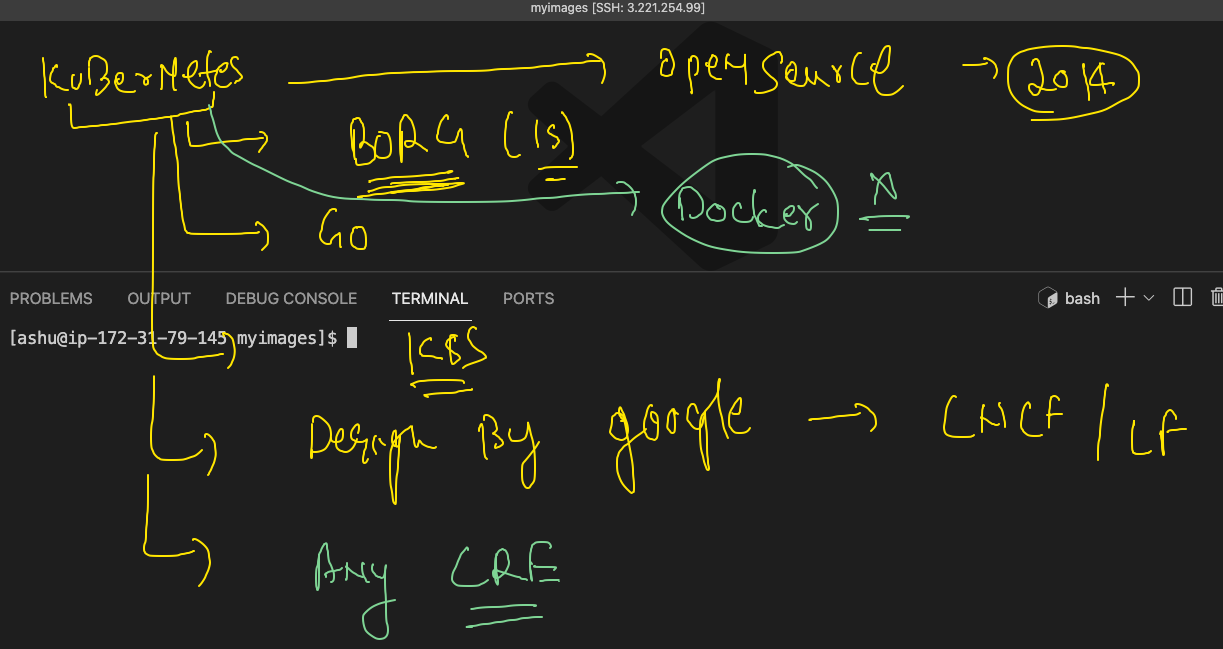 myimages [SSH: 3.221.254.99]
KuBerNetes → OpenSource → 2014
BORG (15)
Docker N
Go
PROBLEMS OUTPUT DEBUG CONSOLE TERMINAL PORTS bash
[ashu@ip-172-31-79-145 myimages]$
K8S
Design By google → CNCF / LF
Any CRE